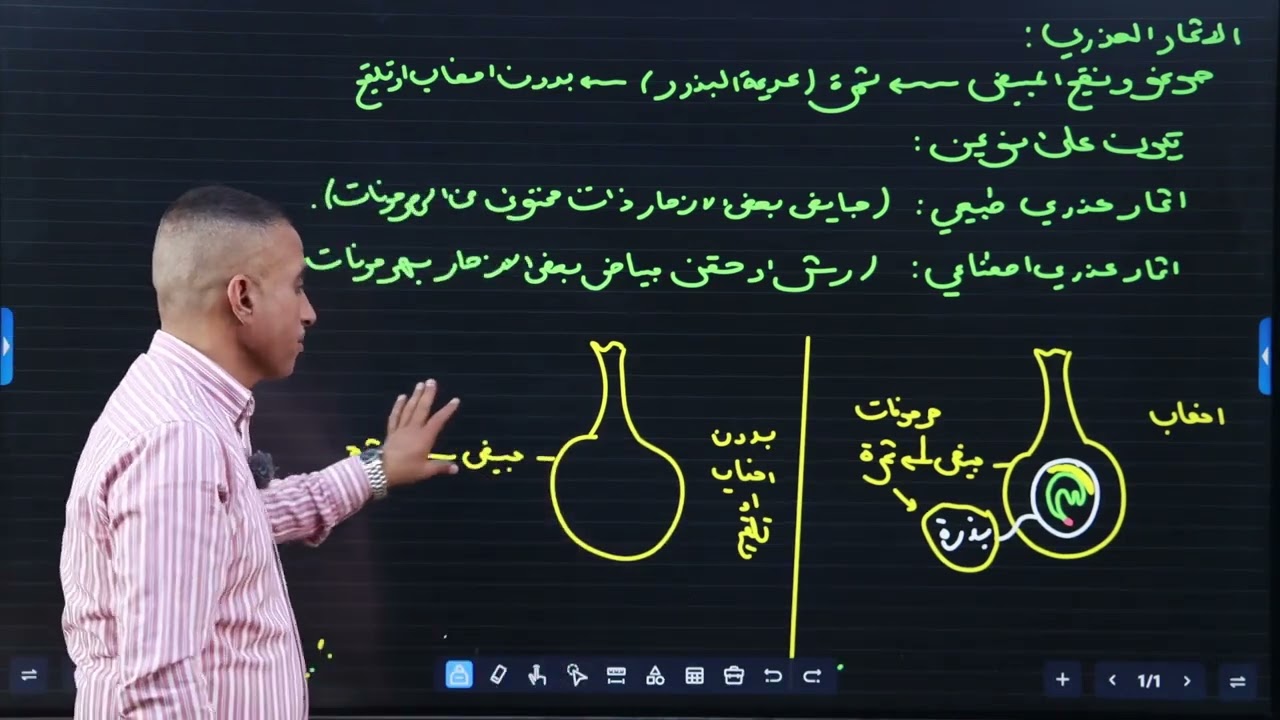 الاثمار العذري :
نمو ونضج المبيض ← ثمرة (عديمة البذور) ← بدون اخصاب او تلقيح
يكون على نوعين :
اثمار عذري طبيعي : (مبايض بعض الازهار ذات محتوى من الهرمونات).
اثمار عذري اصطناعي : (رش او حقن مبايض بعض الازهار بهرمونات
اخصاب
هرمونات
مبيض ← ثمرة
بذرة
بدون
اخصاب
او
تلقيح
مبيض
1/1